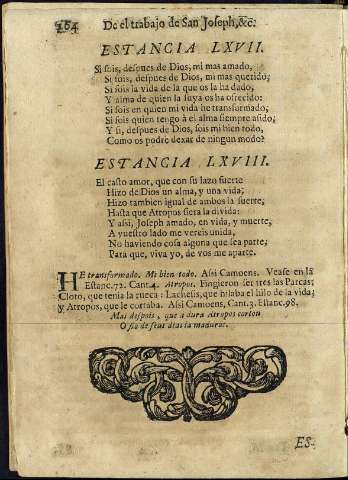 264 De el trabajo de San Joseph, &c.
ESTANCIA LXVII.
Si sois, despues de Dios, mi mas amado,
Si sois, despues de Dios, mi mas querido;
Si sois la vida de la que os la ha dado,
Y alma de quien la suya os ha ofrecido:
Si sois en quien mi vida he transformado;
Si sois quien tengo à el alma siempre asido;
Y si, despues de Dios, sois mi bien todo,
Como os podrè dexar de ningun modo?
ESTANCIA LXVIII.
El casto amor, que con su lazo fuerte
Hizo de Dios un alma, y una vida;
Hizo tambien igual de ambos la suerte,
Hasta que Atropos fiera la divida:
Y assi, Joseph amado, en vida, y muerte,
A vuestro lado me vereis unida,
No haviendo cosa alguna que sea parte;
Para que, viva yo, de vos me aparte.
HE transformado. Mi bien todo. Assi Camoens. Vease en la
Estanc. 72. Cant. 4. Atropos. Fingieron ser tres las Parcas;
Cloto, que tenia la rueca: Lachesis, que hilaba el hilo de la vida;
y Atropos, que le cortaba. Assi Camoens, Cant. 3. Estanc. 98.
Mas despois, que a dura Atropos cortou
O fio de seus dias ia maduros.
ES-